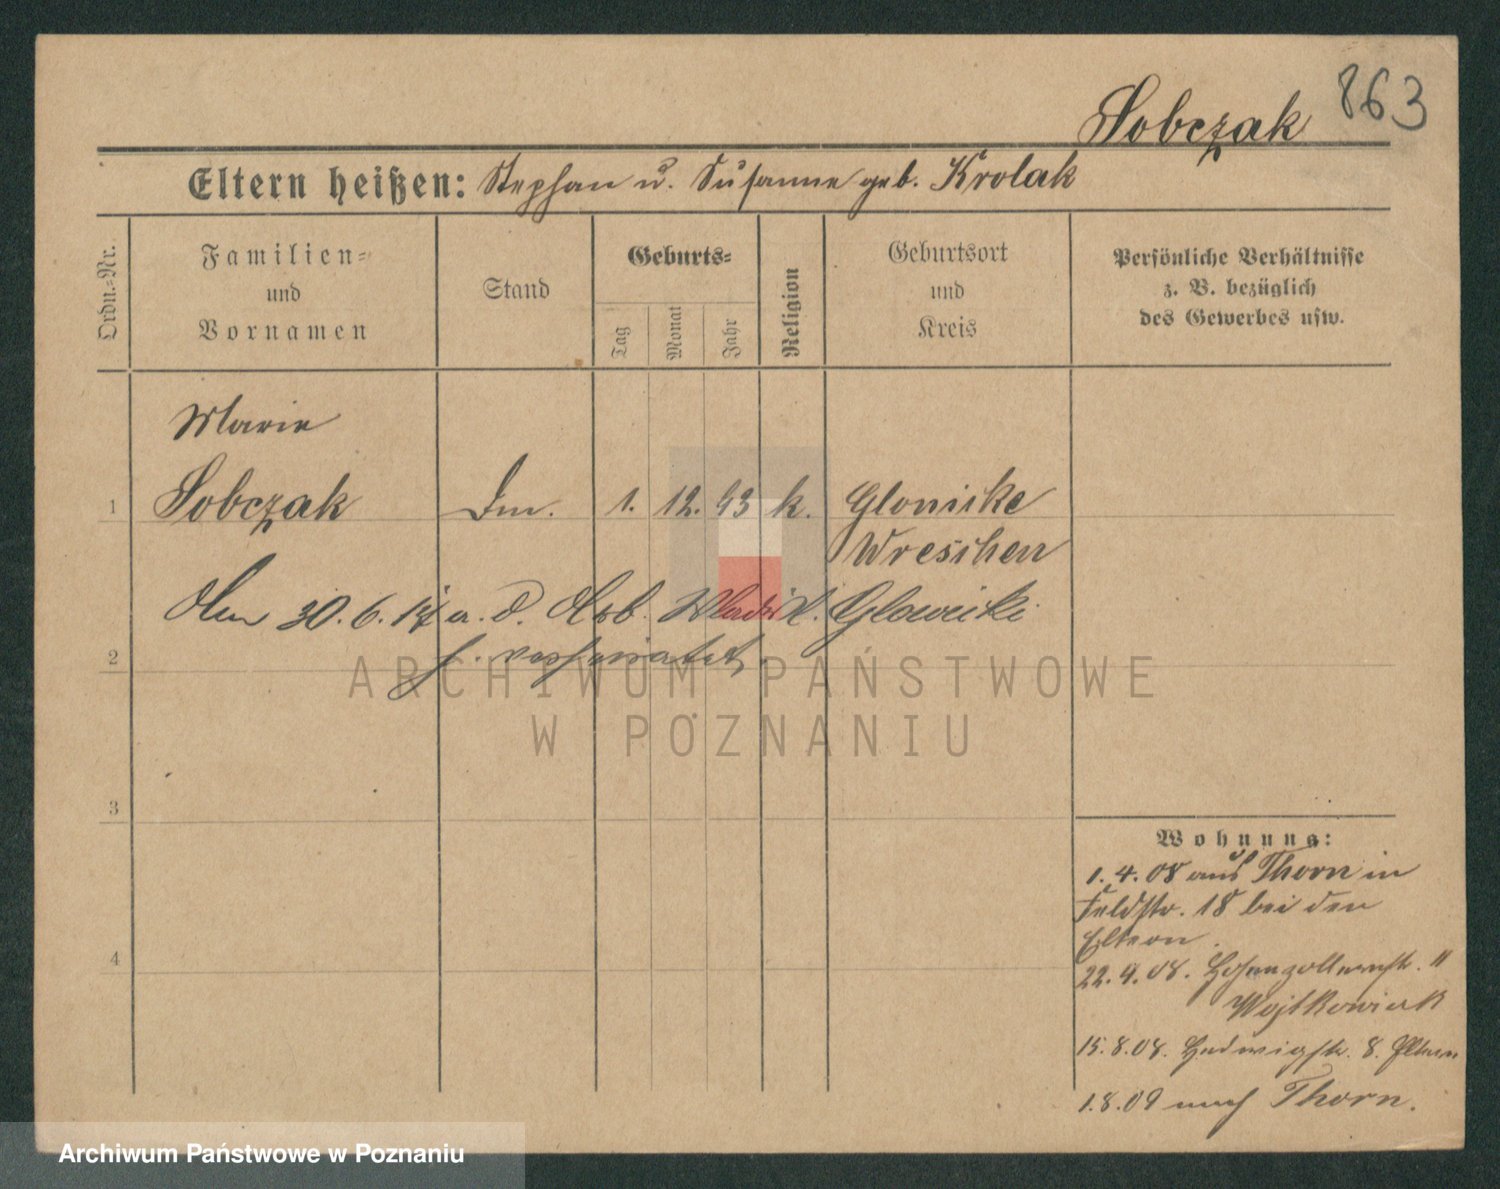 863
Sobczak
Eltern heißen: Stephan u. Susanne geb. Krolak
Ordn.-Nr.
Familien-
und
Vornamen
Stand
Geburts-
Tag
Monat
Jahr
Religion
Geburtsort
und
Kreis
Persönliche Verhältnisse
z. B. bezüglich
des Gewerbes usw.
Marie
1 Sobczak 1. 12. 93 k.
Wreschen
30. 6. 17 a. d.
2
3
4
ARCHIWUM PAŃSTWOWE
W POZNANIU
Wohnung:
1. 4. 08 aus Thorn in
Feldstr. 18 bei den
Eltern.
22. 4. 08. Hohenzollernstr. 11
Wojtkowiak
15. 8. 08. Hedwigstr. 8. Eltern
1. 8. 09 nach Thorn.
Archiwum Państwowe w Poznaniu